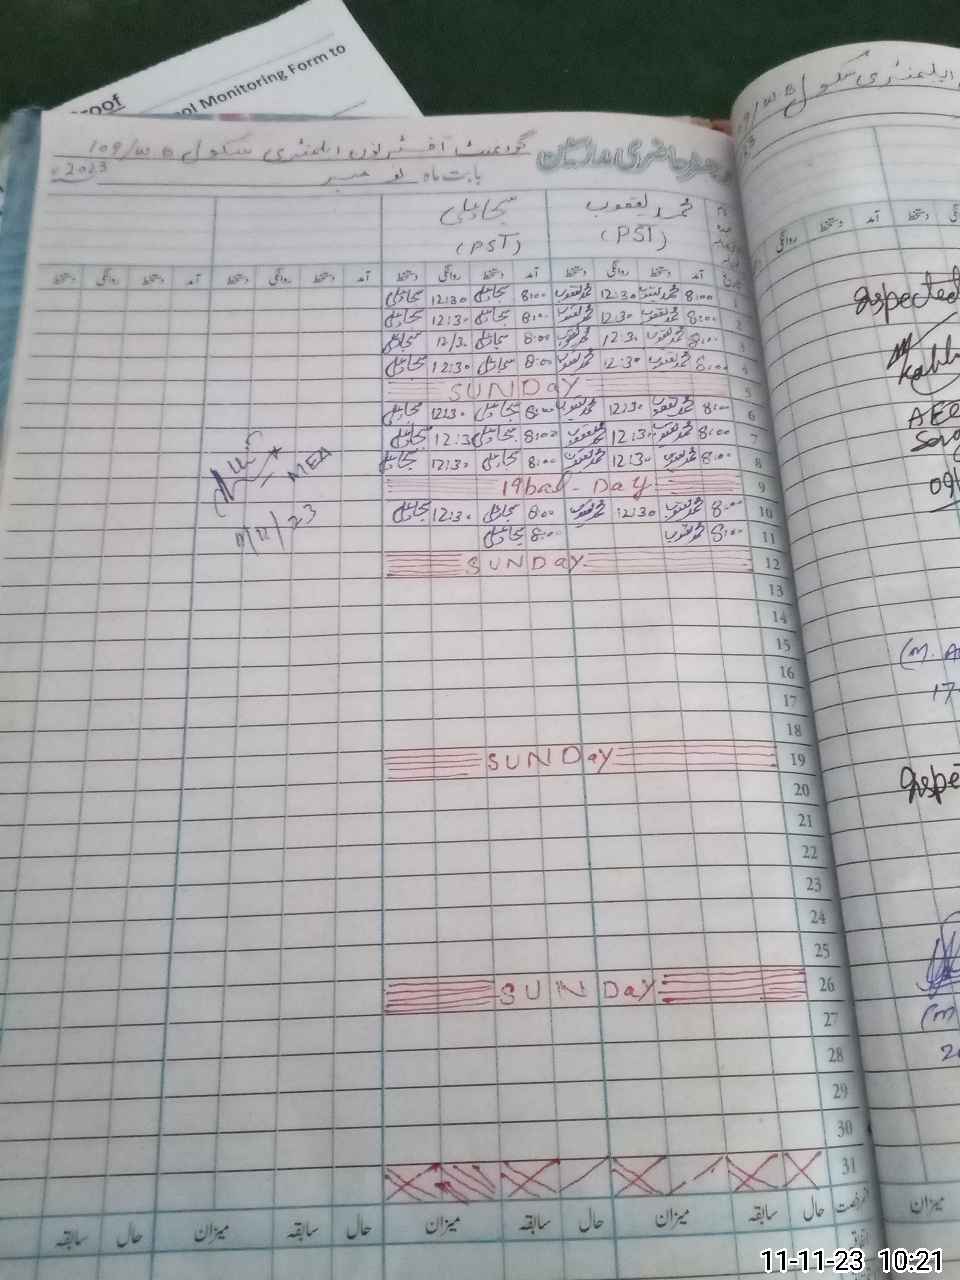 roof
ool Monitoring Form to
رجسٹر حاضری مدارسین
گورنمنٹ آفٹر نون ایلیمنٹری سکول 109/WB
بابت ماہ نومبر 2023
محمد یعقوب سجاد علی
(PST) (PST)
آمد دستخط روانگی دستخط آمد دستخط روانگی دستخط آمد دستخط روانگی دستخط آمد دستخط روانگی دستخط
8:00 محمد یعقوب 12:30 محمد یعقوب 8:00 سجاد علی 12:30 سجاد علی
2 8:00 محمد یعقوب 12:30 محمد یعقوب 8:00 سجاد علی 12:30 سجاد علی
3 8:00 محمد یعقوب 12:30 محمد یعقوب 8:00 سجاد علی 12:30 سجاد علی
4 8:00 محمد یعقوب 12:30 محمد یعقوب 8:00 سجاد علی 12:30 سجاد علی
5 SUNDAY
6 8:00 محمد یعقوب 12:30 محمد یعقوب 8:00 سجاد علی 12:30 سجاد علی
7 8:00 محمد یعقوب 12:30 محمد یعقوب 8:00 سجاد علی 12:30 سجاد علی
8 8:00 محمد یعقوب 12:30 محمد یعقوب 8:00 سجاد علی 12:30 سجاد علی
9 19bal - DAY
10 8:00 محمد یعقوب 12:30 محمد یعقوب 8:00 سجاد علی 12:30 سجاد علی
11 8:00 محمد یعقوب 8:00 سجاد علی
12 SUNDAY
13
14
15
16
17
18
19 SUNDay
20
21
22
23
24
25
26 SUNDay
27
28
29
30
31
حال سابقہ میزان حال سابقہ میزان حال سابقہ میزان حال سابقہ
MEA
11/11/23
ایلیمنٹری سکول
دستخط آمد دستخط روانگی
AEO
میزان
11-11-23 10:21